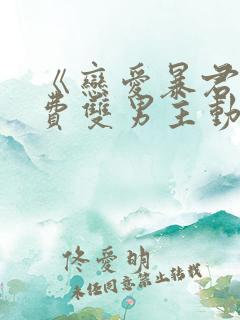 《戀愛暴君
費雙男主動
佟愛明
未经同意禁止转载